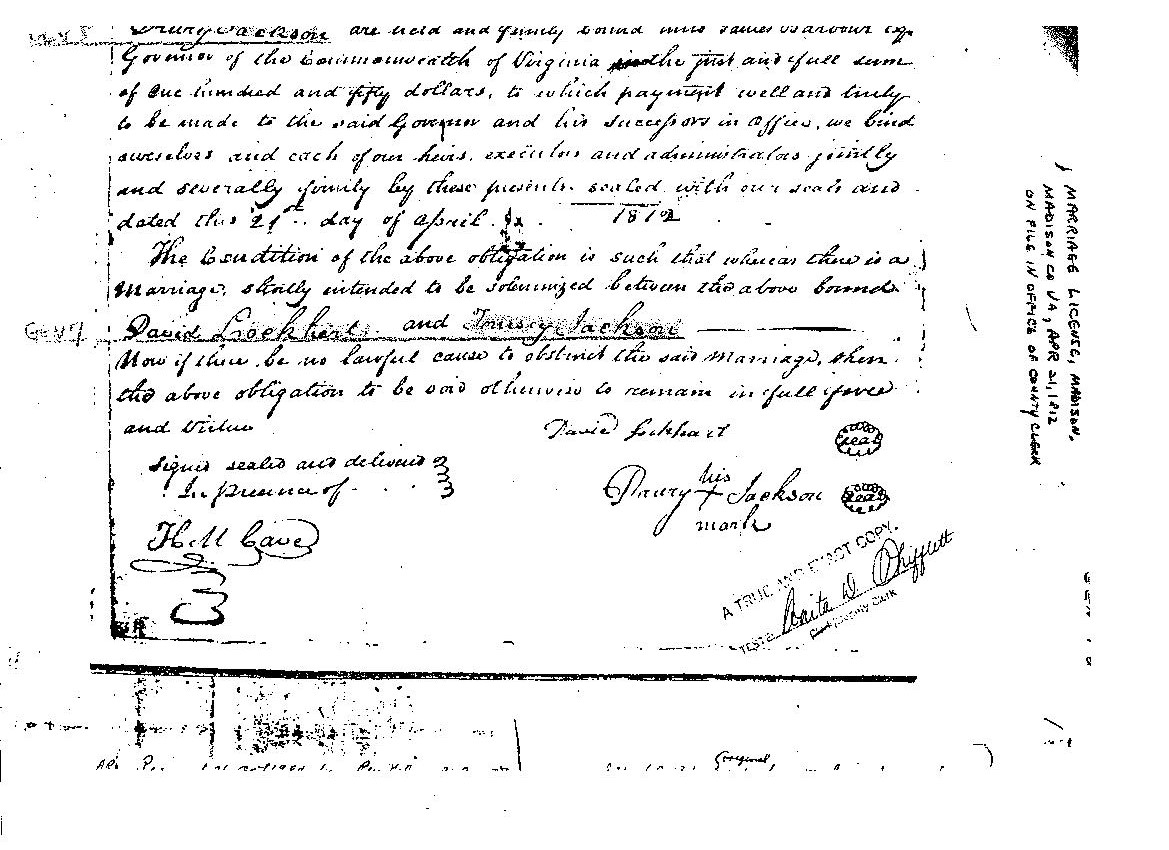 Drury Jackson are held and firmly bound unto James Barbour esq
Governor of the Commonwealth of Virginia in the just and full sum
of one hundred and fifty dollars, to which payment well and truly
to be made to the said Governor and his successors in office, we bind
ourselves and each of our heirs, executors and administrators jointly
and severally firmly by these presents. sealed with our seals and
dated this 21st day of April 1812
The Condition of the above obligation is such that whereas there is a
Marriage, shortly intended to be solemnized between the above bound
David Lockhart and Jackson
Now if there be no lawful cause to obstruct the said Marriage, then
the above obligation to be void otherwise to remain in full force
and Virtue
David Lockhart seal
Signed sealed and delivered
In presence of
his
Drury + Jackson seal
mark
H M Cave
A TRUE AND EXACT COPY.
TESTE Anita D. Shifflett
Deputy Clerk
GEN 7
MARRIAGE LICENSE, MADISON,
MADISON CO VA, APR 21, 1812
ON FILE IN OFFICE OF COUNTY CLERK
original